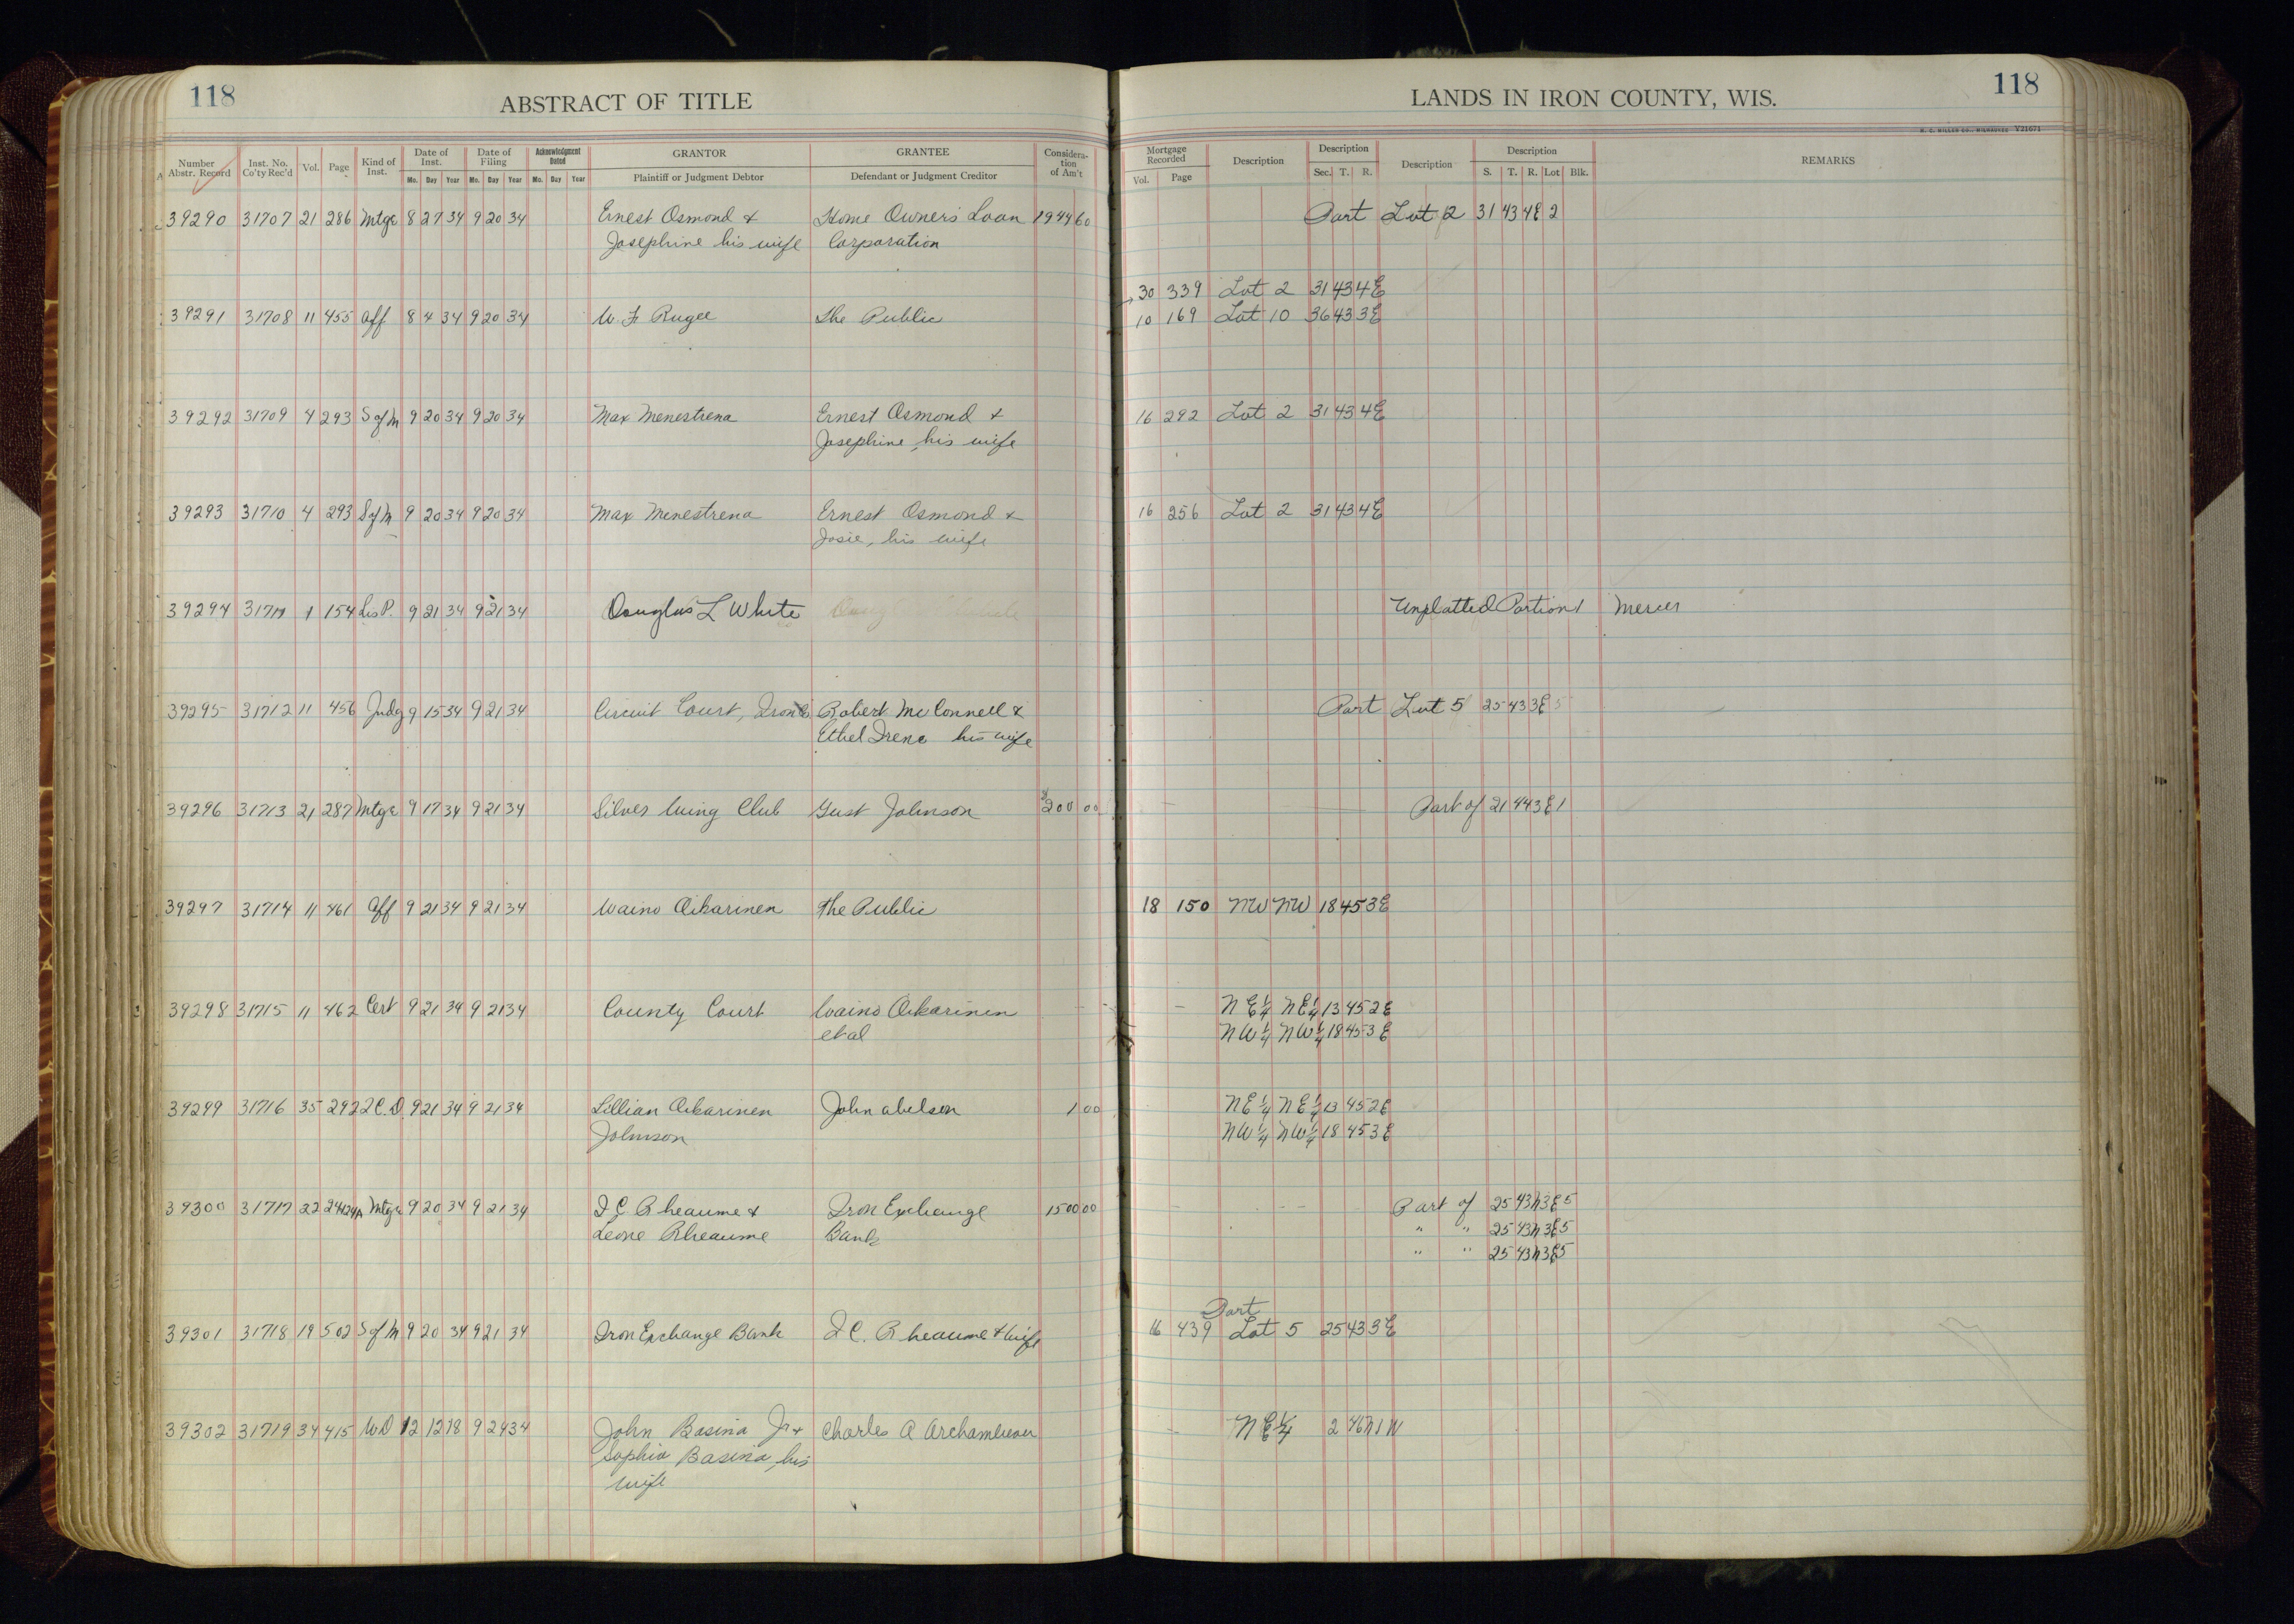 118
ABSTRACT OF TITLE
LANDS IN IRON COUNTY, WIS.
118
H. C. MILLER CO., MILWAUKEE V21671
Number Abstr. Record | Inst. No. Co'ty Rec'd | Vol. | Page | Kind of Inst. | Date of Inst. Mo. Day Year | Date of Filing Mo. Day Year | Acknowledgment Dated Mo. Day Year | GRANTOR Plaintiff or Judgment Debtor | GRANTEE Defendant or Judgment Creditor | Consideration of Am't | Mortgage Recorded Vol. Page | Description | Description Sec. T. R. | Description | Description S. T. R. Lot Blk. | REMARKS
39290 31707 21 286 Mtge 8 27 34 9 20 34 Ernest Osmond & Home Owners Loan 1944 60 Part Lot 2 31 43 4E 2
Josephine his wife Corporation
30 339 Lot 2 31 43 4E
39291 31708 11 455 Aff 8 4 34 9 20 34 W. F. Rugee The Public 10 169 Lot 10 36 43 3E
39292 31709 4 293 S of M 9 20 34 9 20 34 Max Menestrena Ernest Osmond & 16 292 Lot 2 31 43 4E
Josephine, his wife
39293 31710 4 293 S of M 9 20 34 9 20 34 Max Menestrena Ernest Osmond & 16 256 Lot 2 31 43 4E
Josie, his wife
39294 31711 1 154 Lis P. 9 21 34 9 21 34 Douglas L White Unplatted Portion Mercer
39295 31712 11 456 Judg 9 15 34 9 21 34 Circuit Court, Iron Co Robert McConnell & Part Lot 5 25 43 3E 5
Ethel Irene his wife
39296 31713 21 287 Mtge 9 17 34 9 21 34 Silver Wing Club Gust Johnson 200 00 Part of 21 44 3E 1
39297 31714 11 461 Aff 9 21 34 9 21 34 Waino Oikarinen The Public 18 150 NW NW 18 45 3E
39298 31715 11 462 Cert 9 21 34 9 21 34 County Court Waino Oikarinen NE¼ NE¼ 13 45 2E
et al NW¼ NW¼ 18 45 3E
39299 31716 35 292 2 C.D. 9 21 34 9 21 34 Lillian Oikarinen John Abelson 1 00 NE¼ NE¼ 13 45 2E
Johnson NW¼ NW¼ 18 45 3E
39300 31717 22 Mtge 9 20 34 9 21 34 I C Rheaume & Iron Exchange 1500 00 Part of 25 43N 3E 5
Leone Rheaume Bank " " 25 43N 3E 5
" " 25 43N 3E 5
Part
39301 31718 19 502 S of M 9 20 34 9 21 34 Iron Exchange Bank I C. Rheaume & Wife 16 439 Lot 5 25 43 3E
39302 31719 34 415 WD 12 12 18 9 24 34 John Basina Jr & Charles A Archambeau NE¼ 2 46N 1W
Sophia Basina, his
wife